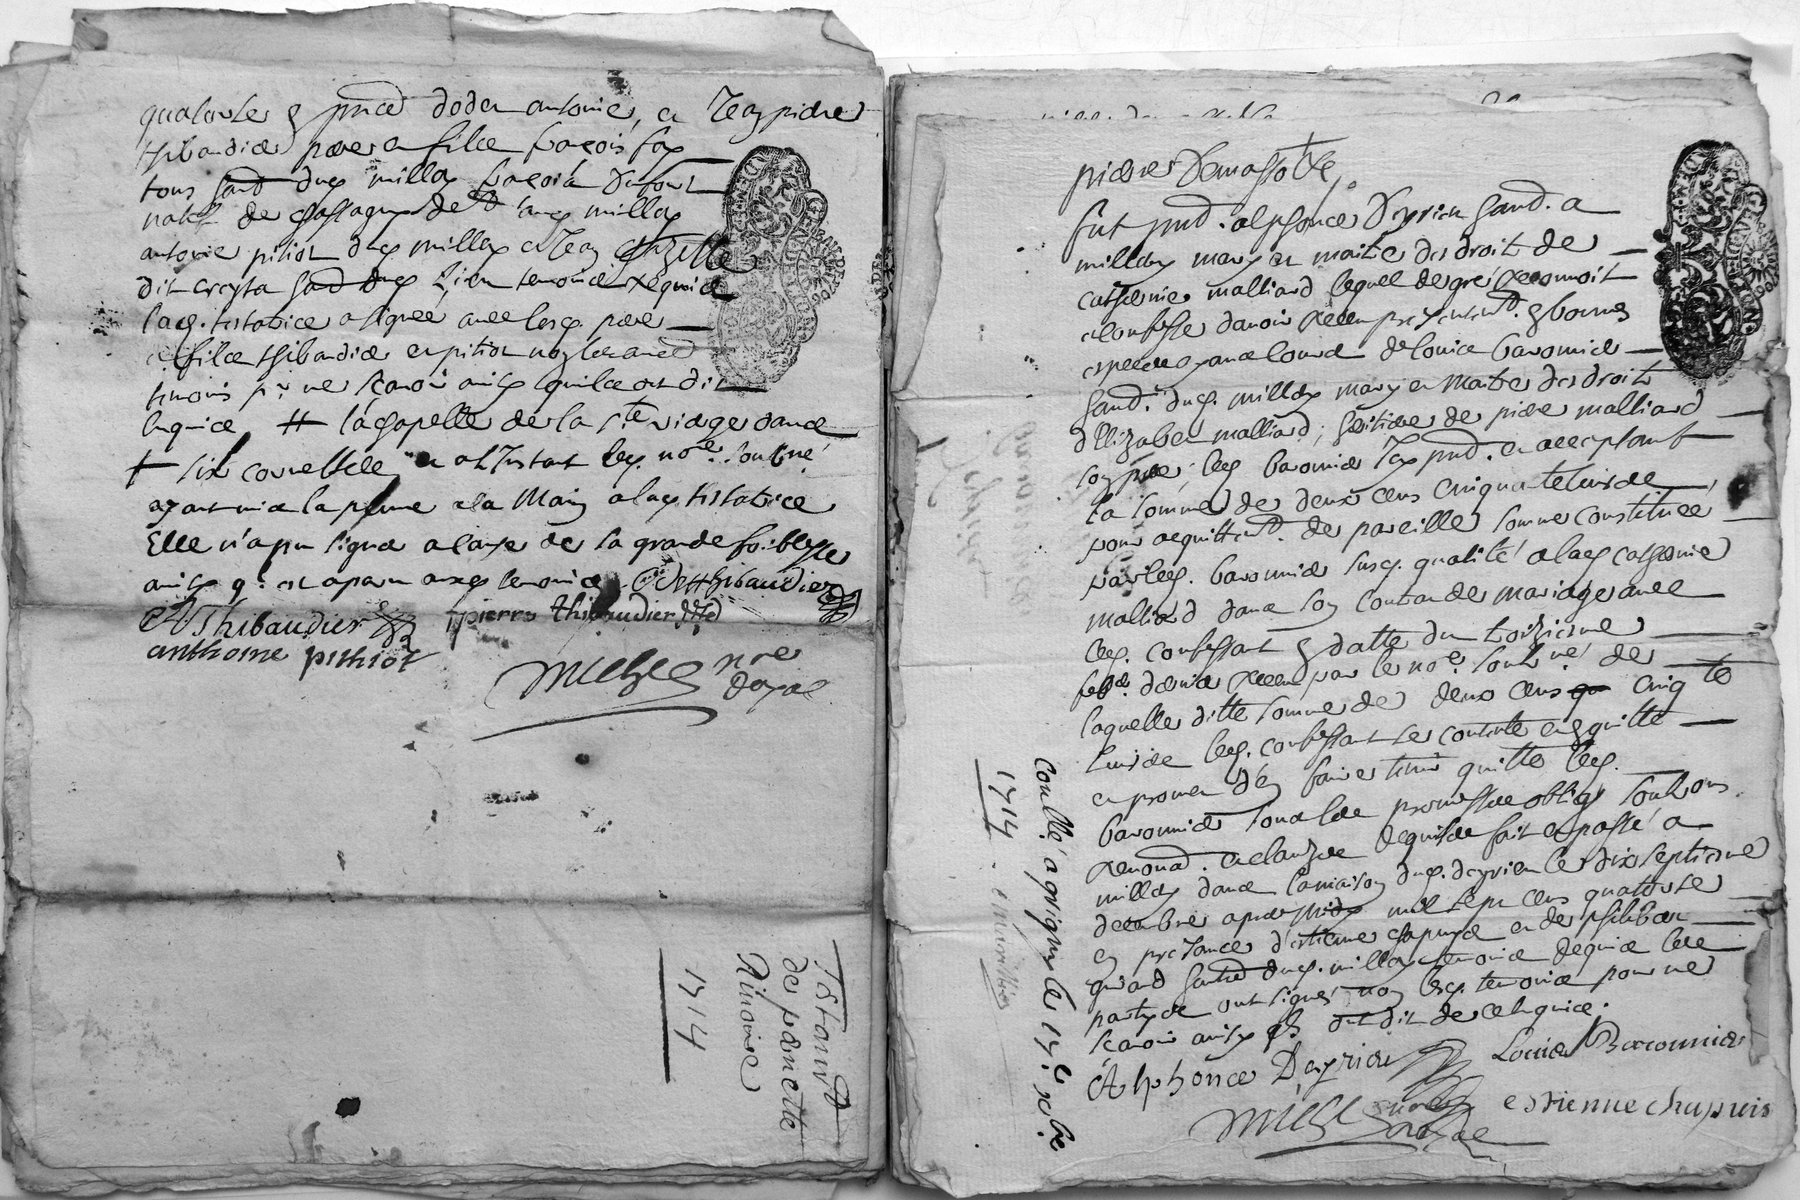 quatorze & pnce dodu antoine, et Jean pierre
Thibaudier pere et fils françois fay
tous hant dud millery françois Dufour
natif de chassagny de dt aud millery
antoine pitiot dud millery et Jean
dit hant dud lieu temoins requis
lad. testatrice a signée avec lesd. pere
et fils thibaudier et pitiot non les autres
temoins pr ne scavoir ainsy quils ont dit
enquis # la chapelle de la ste vierge dans
+ six et a l'Instant led. nore. soubne
ayant mis la plume a la Main a lad testatrice
Elle n'a pu signer a cause de sa grande foiblesse
ainsy q: est aparu auxd temoins Thibaudier
Thibaudier pierre thibaudier
anthoine pithiot
nre
royal
Testamt
de pernette
Rivoire
1714
pierre
fut pnt. alphonce Deyrieu hant. a
millery mary et maitre des droit de
catherine malliard lequel de gré reconnoit
et confesse d'avoir receu presentemt. & bonnes
especes ayant cours de louis baronnier
hant. dud. millery mary et maitre des droits
d'Elizabeth malliard, heritiere de pierre malliard
son pere, led baronnier Icy pnt. et acceptant
la somme de deux cens cinquante livres
pour acquittemt. de pareille somme constituée
par led. baronnier susd. qualité a lad catherine
malliard dans son contrat de mariage avec
led. confessant & datte du troizieme
febr. dernier receu par le nore. soubne de
laquelle ditte somme de deux cens cinqte
livres led. confessant se contente et quitte
et promet d'en faire tenir quitte led.
baronnier soubs les promesses oblig soub ons
renond. et clauzes requises fait et passé a
millery dans la maison dud. deyrieu le dix septieme
decembre apres midy mil sept cens quatorze
en presence d'estienne chapuys et de philibert
hants dud. millery temoins requis les
partyes ont signé non lesd. temoins pour ne
scavoir ainsy qls ont dit de ce enquis.
Alphonce Deyrieu Louis Baronnier
estienne chapuis
royal
controllé a grigny le 17e xbre
1714